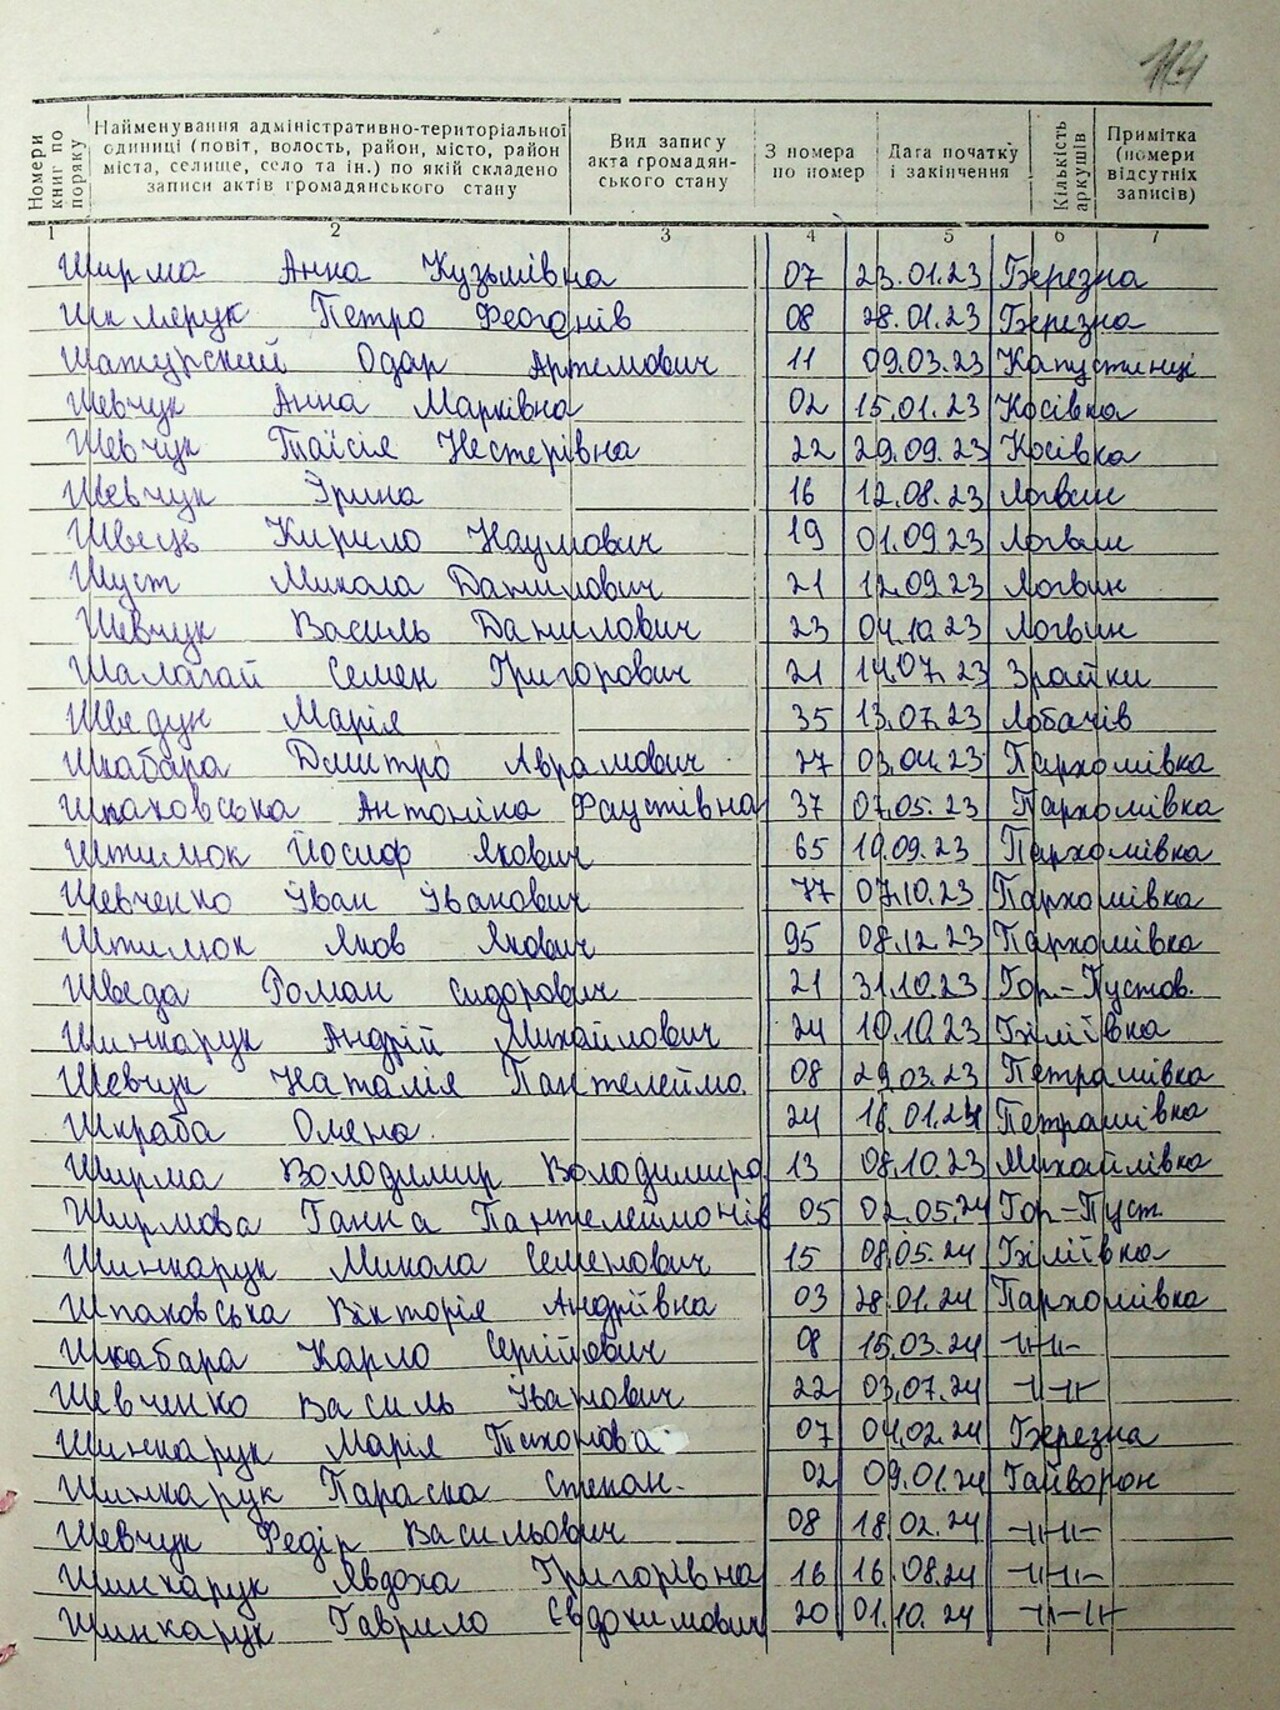 114
Номери книг по порядку
Найменування адміністративно-територіальної
одиниці (повіт, волость, район, місто, район
міста, селище, село та ін.) по якій складено
записи актів громадянського стану
Вид запису
акта громадян-
ського стану
З номера
по номер
Дата початку
і закінчення
Кількість аркушів
Примітка
(номери
відсутніх
записів)
1 2 3 4 5 6 7
Ширма Анна Кузьмівна 07 23.01.23 Березна
Шклярук Петро Феогонів 08 28.01.23 Березна
Шатурский Одар Артемович 11 09.03.23 Капустинці
Шевчук Анна Марківна 02 15.01.23 Косівка
Шевчук Таїсія Нестерівна 22 29.09.23 Косівка
Шевчук Ярина 16 12.08.23 Логвин
Швець Кирило Наумович 19 01.09.23 Логвин
Шуст Микола Данилович 21 12.09.23 Логвин
Шевчук Василь Данилович 23 04.10.23 Логвин
Шалагай Семен Григорович 21 14.07.23 Зрайки
Шведун Марія 35 13.07.23 Лобачів
Шкабара Дмитро Аврамович 77 03.04.23 Пархомівка
Шпаковська Антоніна Фаустівна 37 07.05.23 Пархомівка
Штилюк Йосиф Якович 65 19.09.23 Пархомівка
Шевченко Іван Іванович 77 07.10.23 Пархомівка
Штилюк Яков Якович 95 08.12.23 Пархомівка
Шведа Роман Сидорович 21 31.10.23 Гор.-Пустов.
Шинкарук Андрій Михайлович 24 10.10.23 Біліївка
Шевчук Наталія Пантелеймо. 08 29.03.23 Петрашівка
Шкраба Олена 24 16.01.24 Петрашівка
Ширма Володимир Володимиро. 13 08.10.23 Михайлівка
Ширмова Ганна Пантелеймонів 05 02.05.24 Гор-Пуст.
Шинкарук Микола Семенович 15 08.05.24 Біліївка
Шпаковська Вікторія Андріївна 03 28.01.24 Пархомівка
Шкабара Карло Сергійович 9 15.03.24 -11-11-
Шевченко Василь Іванович 22 03.07.24 -11-11-
Шинкарук Марія Тихонова 07 04.02.24 Березна
Шинкарук Параска Степан. 02 09.01.24 Гайворон
Шевчук Федір Васильович 08 18.02.24 -11-11-
Шинкарук Явдоха Григорівна 16 16.08.24 -11-11-
Шинкарук Гаврило Євдокимович 20 01.10.24 -11-11-